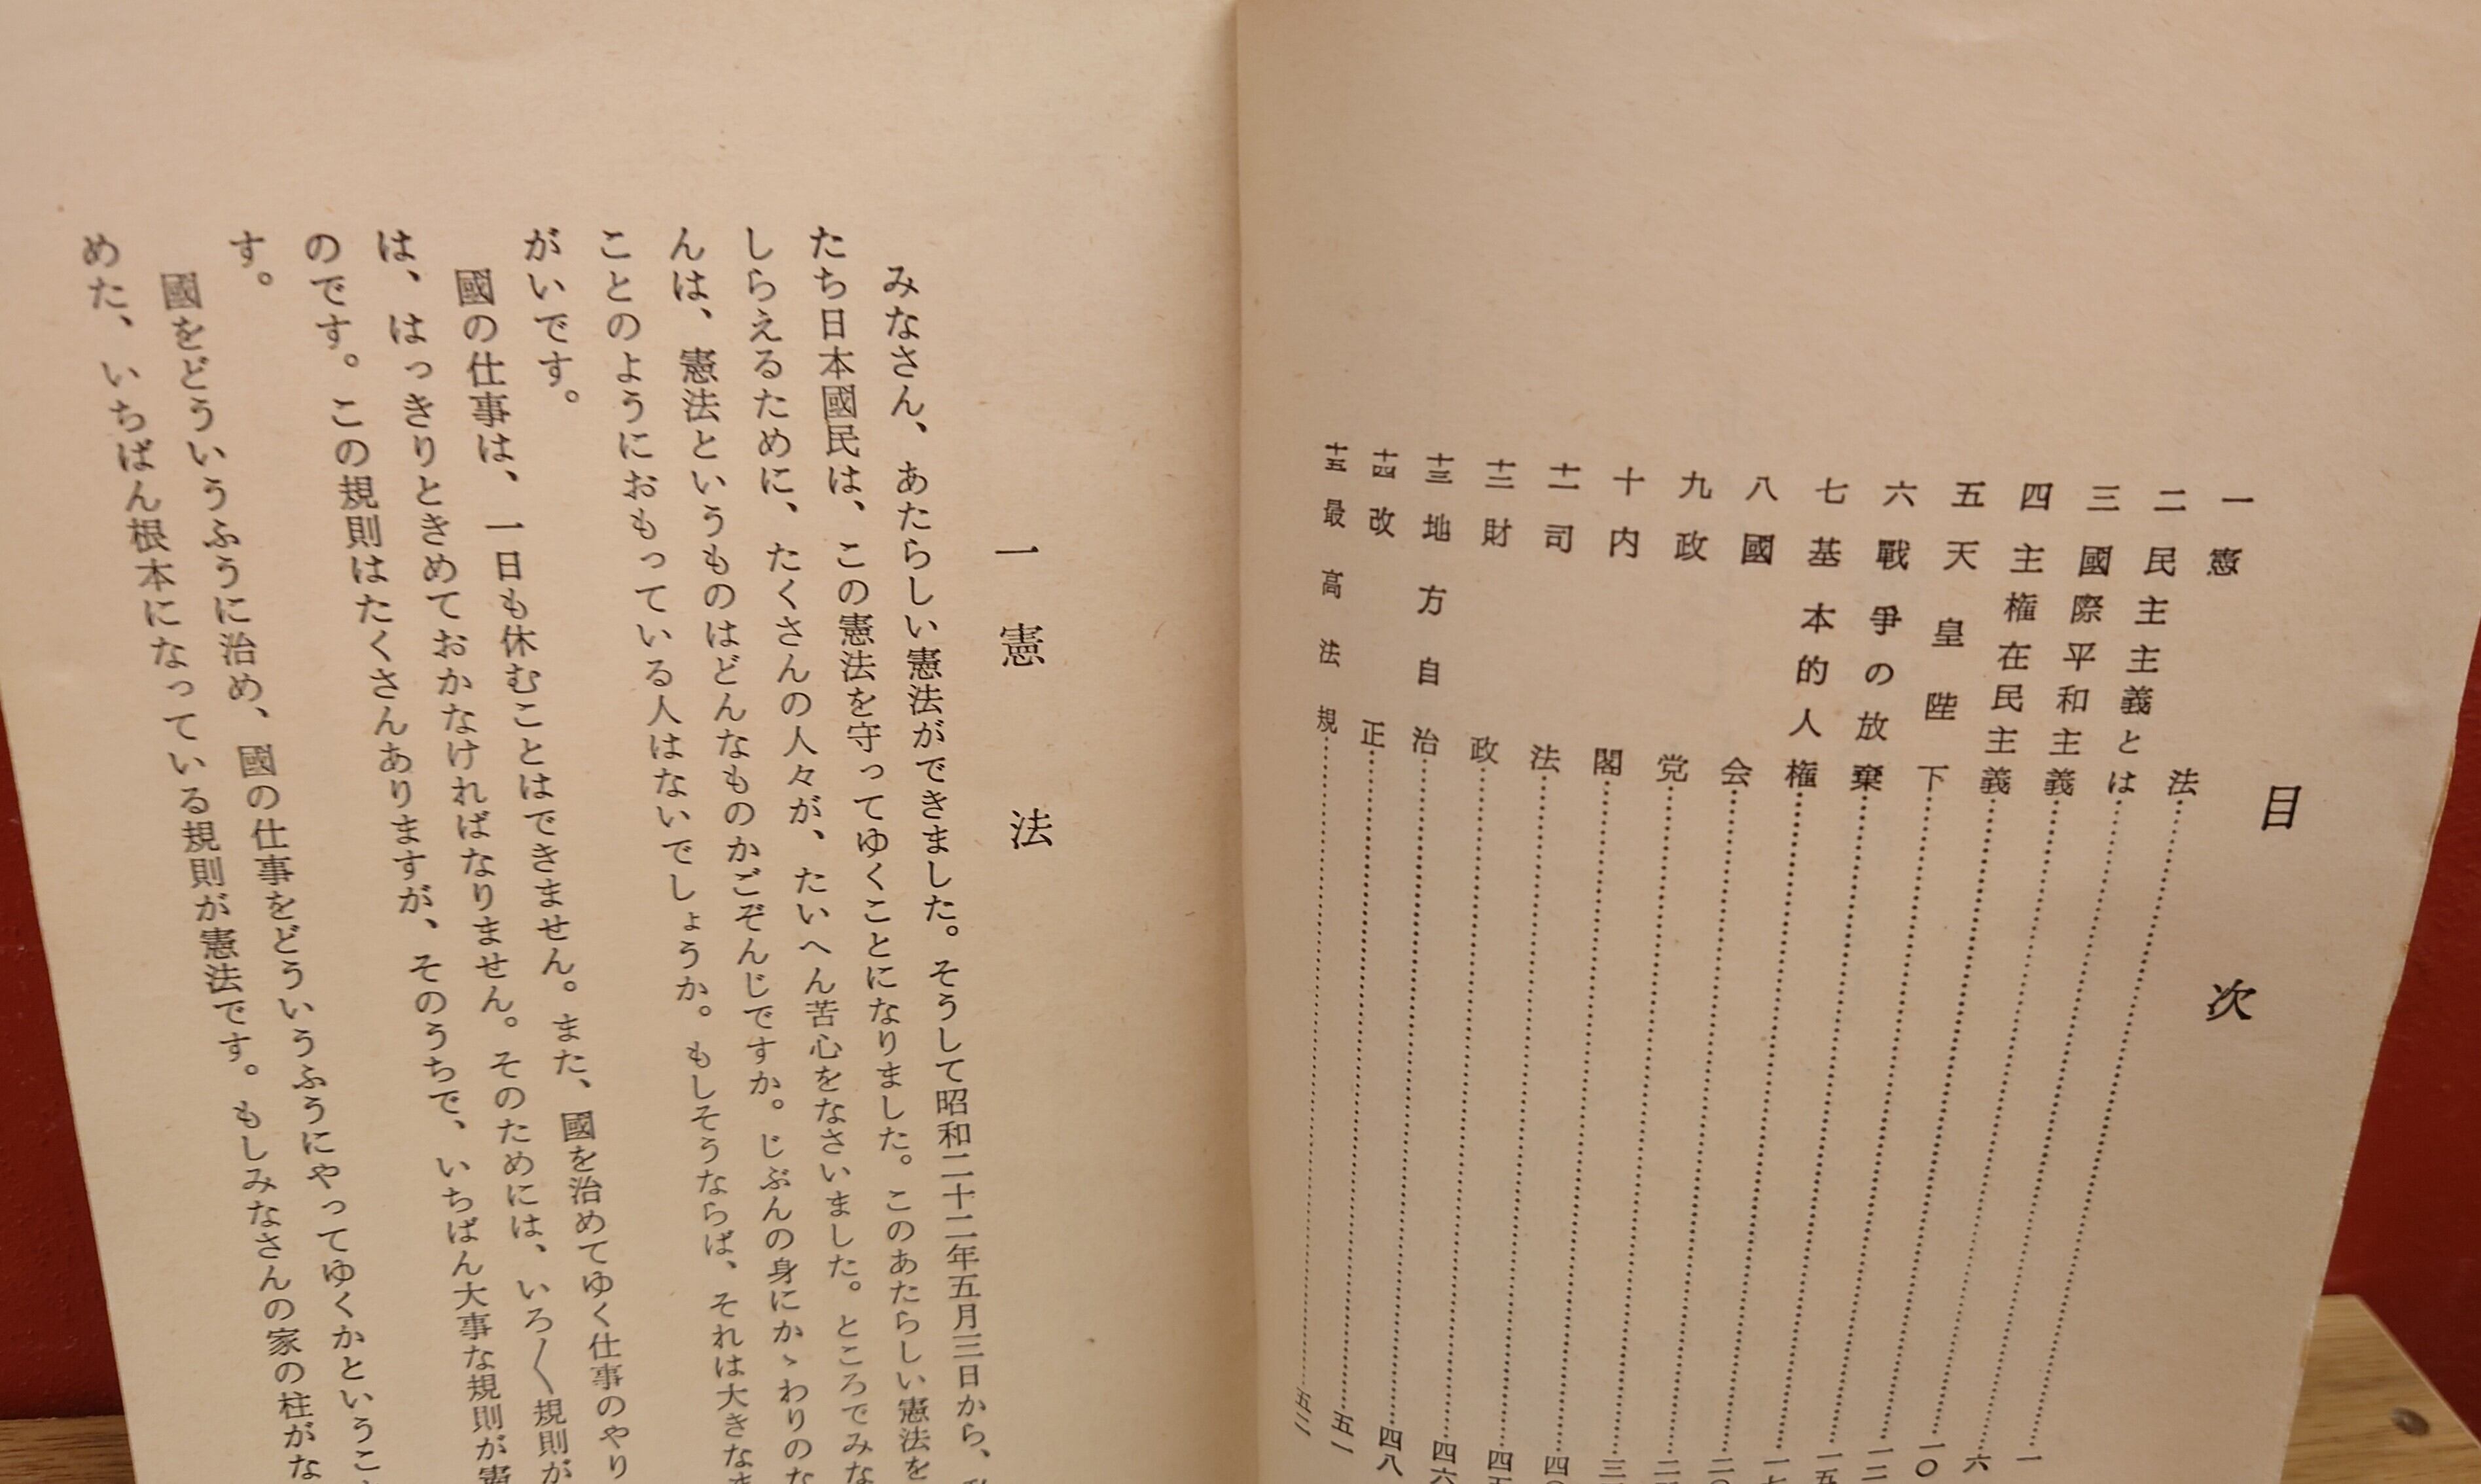 目次
一 憲法……一
二 民主主義とは……六
三 國際平和主義……一〇
四 主権在民主義……一二
五 天皇陛下……
六 戰爭の放棄……
七 基本的人権……
八 國会……
九 政党……
十 内閣……
十一 司法……
十二 財政……
十三 地方自治……四八
十四 改正……五一
十五 最高法規……五二
一 憲法
みなさん、あたらしい憲法ができました。そうして昭和二十二年五月三日から、
たち日本國民は、この憲法を守ってゆくことになりました。このあたらしい憲法を
しらえるために、たくさんの人々が、たいへん苦心をなさいました。ところでみな
んは、憲法というものはどんなものかごぞんじですか。じぶんの身にかゝわりのな
ことのようにおもっている人はないでしょうか。もしそうならば、それは大きなま
がいです。
國の仕事は、一日も休むことはできません。また、國を治めてゆく仕事のやり
は、はっきりときめておかなければなりません。そのためには、いろ〳〵規則が
のです。この規則はたくさんありますが、そのうちで、いちばん大事な規則が憲
す。
國をどういうふうに治め、國の仕事をどういうふうにやってゆくかというこ
めた、いちばん根本になっている規則が憲法です。もしみなさんの家の柱がな